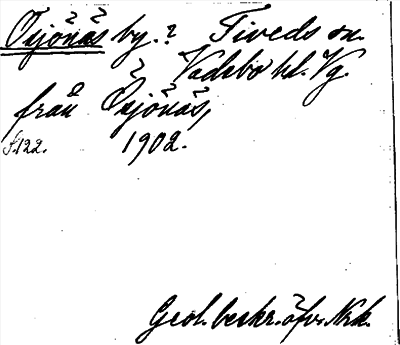 Ösjönäs by.? Tiveds sn.
Vadsbo hd. Vg.
från Ösjönäs,
s. 122. 1902.
Geol. beskr. öfv. Nrk.